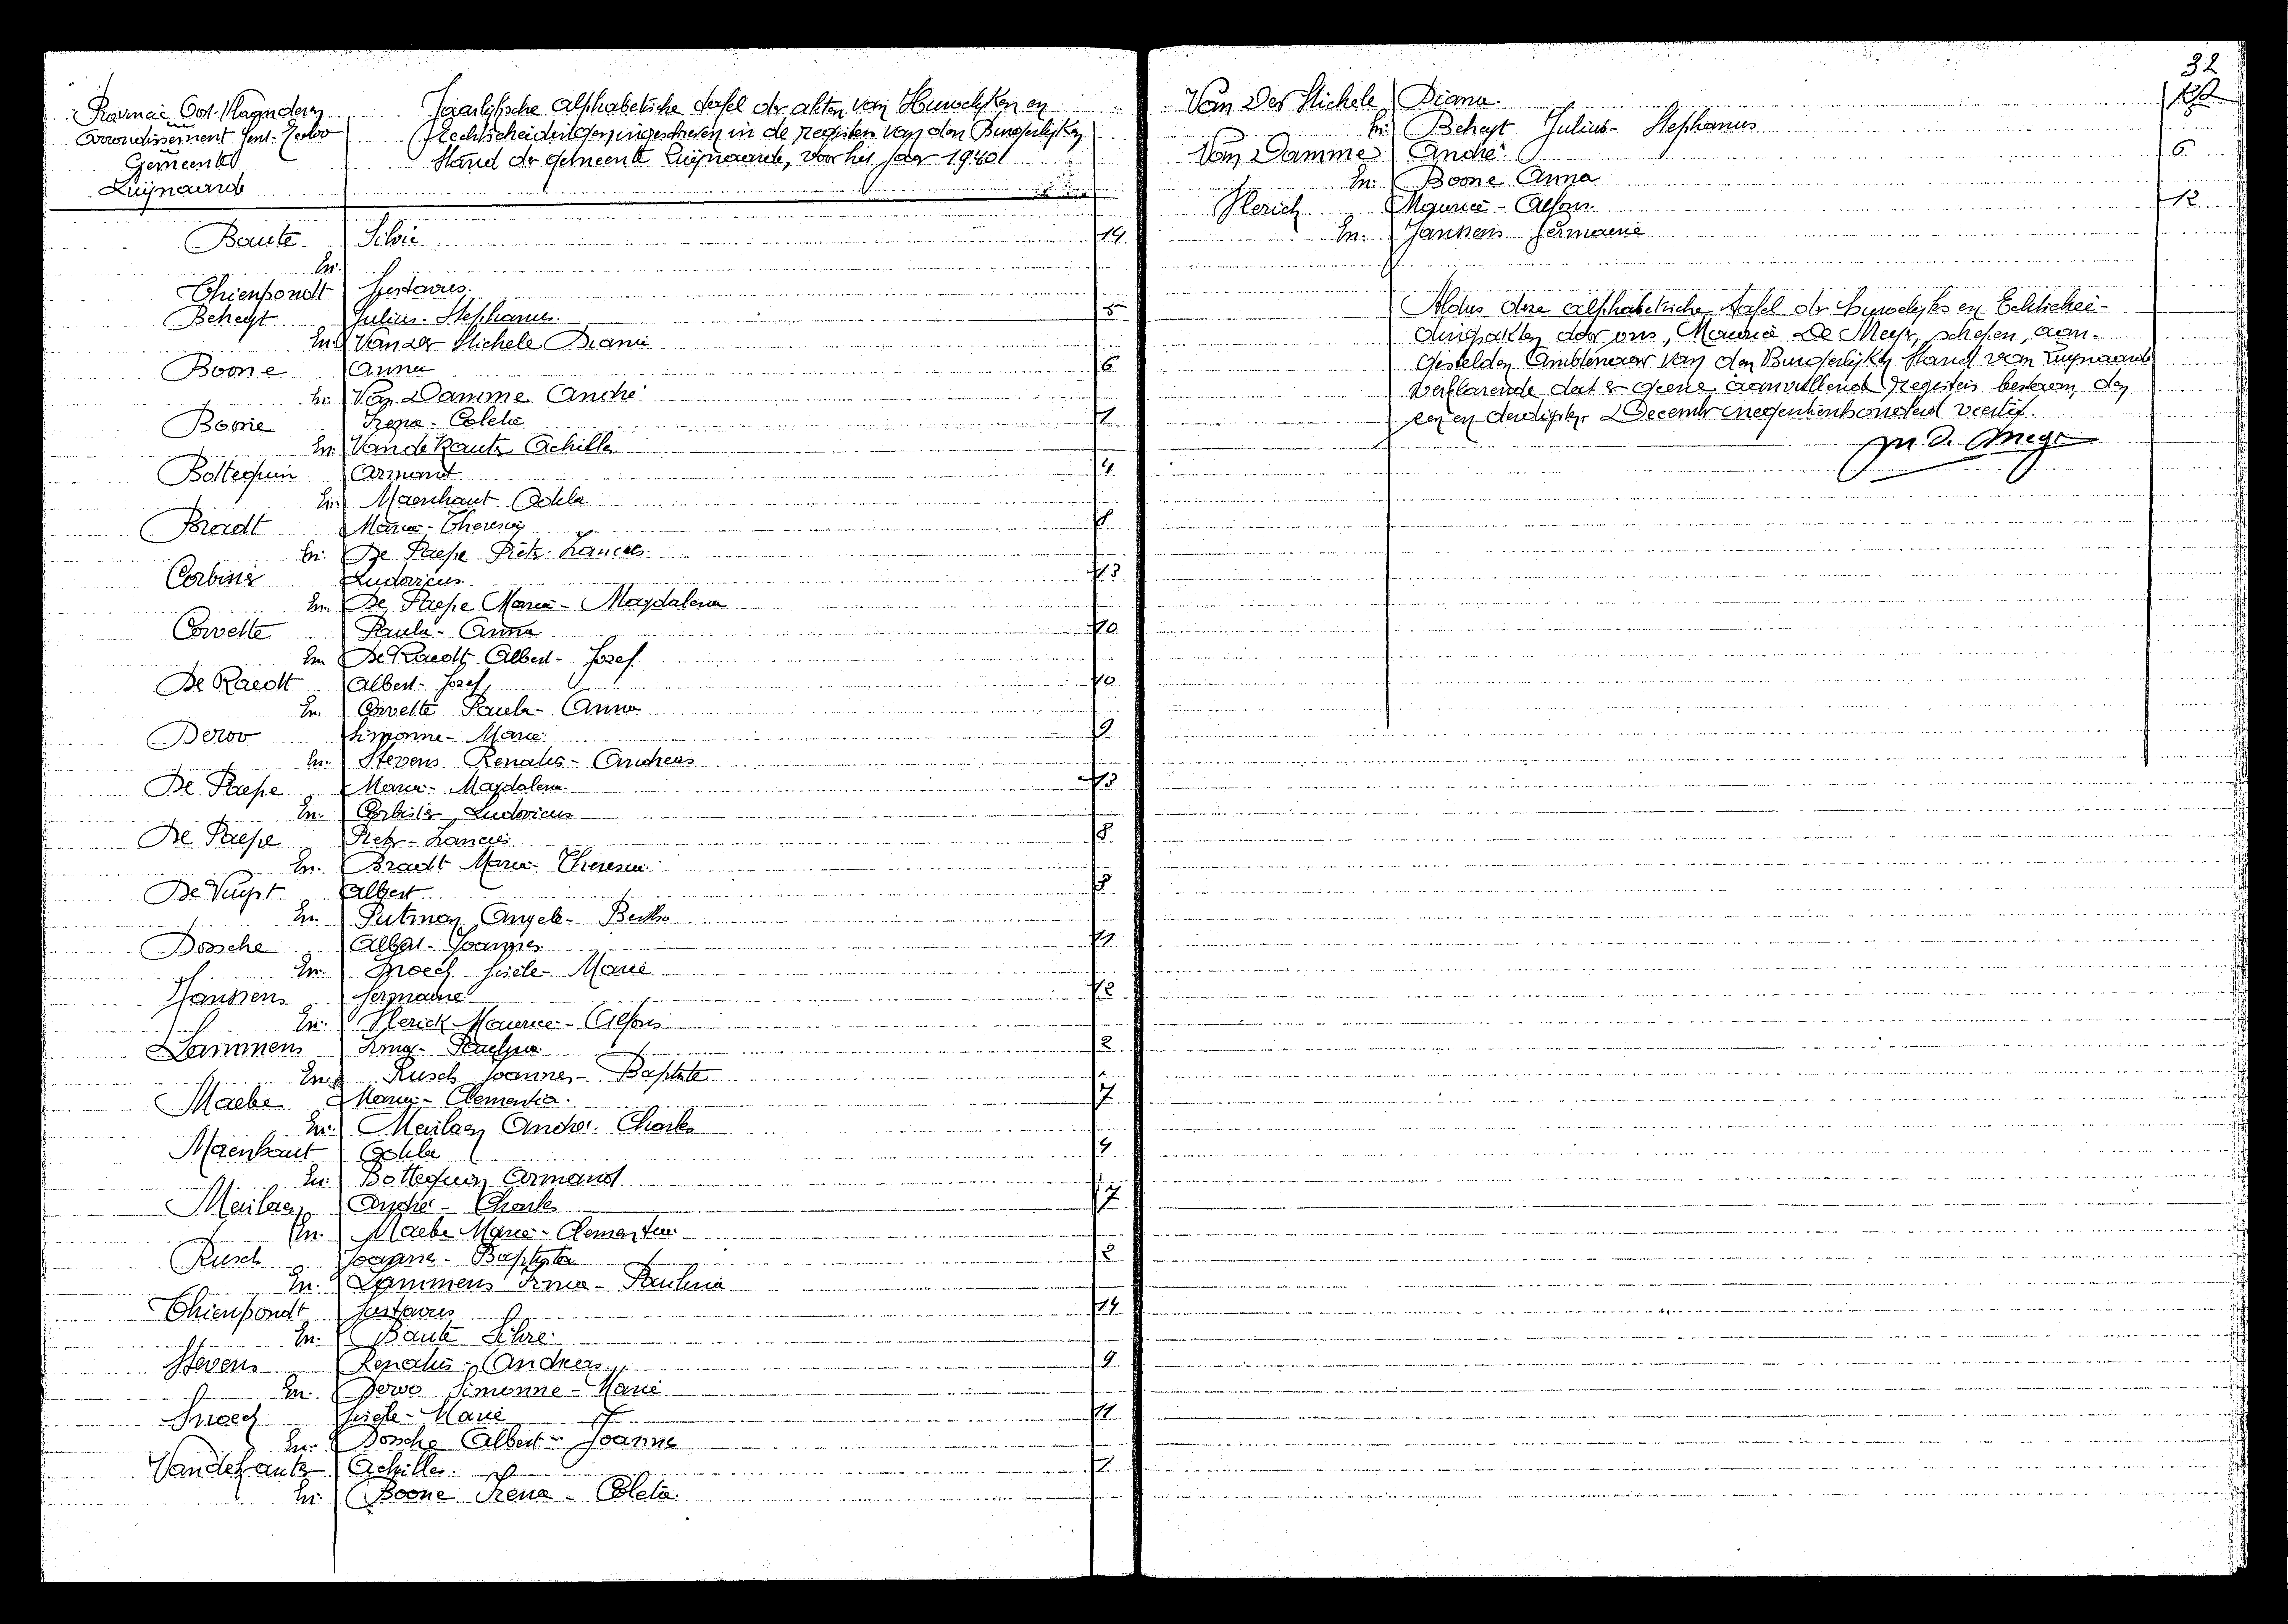 Provincie Oost-Vlaanderen
Arrondissement Gent-Eecloo
Gemeente
Zwijnaarde
Jaarlijksche alphabetische tafel der akten van Huwelijken en
Echtscheidingen, ingeschreven in de registers van den Burgerlijken
Stand der gemeente Zwijnaarde, voor het jaar 1940
Baute Silvie 14
en
Thienpondt Gustavus
Beheyt Julius-Stephanus 5
en Van der Stichele Diana
Boone Anna 6
en Van Damme André
Boone Irena-Coleta 1
en Achille
Bottequin Armand 4
en Maenhaut Odila
Bradt Maria-Theresia 8
en De Paepe Pieter-Francies
Corbisier Ludovicus 13
en De Paepe Maria-Magdalena
Corvelte Paula-Anna 10
en De Raedt Albert-Jozef
De Raedt Albert-Jozef 10
en Corvelte Paula-Anna
Deroo Simonne-Marie 9
en Stevens Renatus-Andreas
De Paepe Maria-Magdalena 13
en Corbisier Ludovicus
De Paepe Pieter-Francies 8
en Bradt Maria-Theresia
De Vuyst Albert 3
en Putman Angele-Bertha
Dossche Albert-Joannes 11
en Snoeck Gisèle-Marie
Janssens Germaine 12
en Sterick Maurice-Alfons
Lammens Irma-Paulina 2
en Rusch Joannes-Baptista
Maebe Maria-Clementia 7
en Meilaen André-Charles
Maenhaut Odila 4
en Bottequin Armand
Meilaen André-Charles 7
en Maebe Maria-Clementia
Rusch Joannes-Baptista 2
en Lammens Irma-Paulina
Thienpondt Gustavus 14
en Baute Silvie
Stevens Renatus-Andreas 9
en Deroo Simonne-Marie
Snoeck Gisèle-Marie 11
en Dossche Albert-Joannes
Achille 1
en Boone Irena-Coleta
32
Van Der Stichele Diana
en Beheyt Julius-Stephanus
Van Damme André 6
en Boone Anna
Sterick Maurice-Alfons 12
en Janssens Germaine
Aldus deze alphabetische tafel der huwelijks en Echtschei-
dingsakten door ons, Maurice De Meyer, schepen, aan-
gestelden Ambtenaar van den Burgerlijken Stand van Zwijnaarde
verklarende dat er geene aanvullende registers bestaan, den
een en dertigsten December negentienhonderd veertig.
M. De Meyer